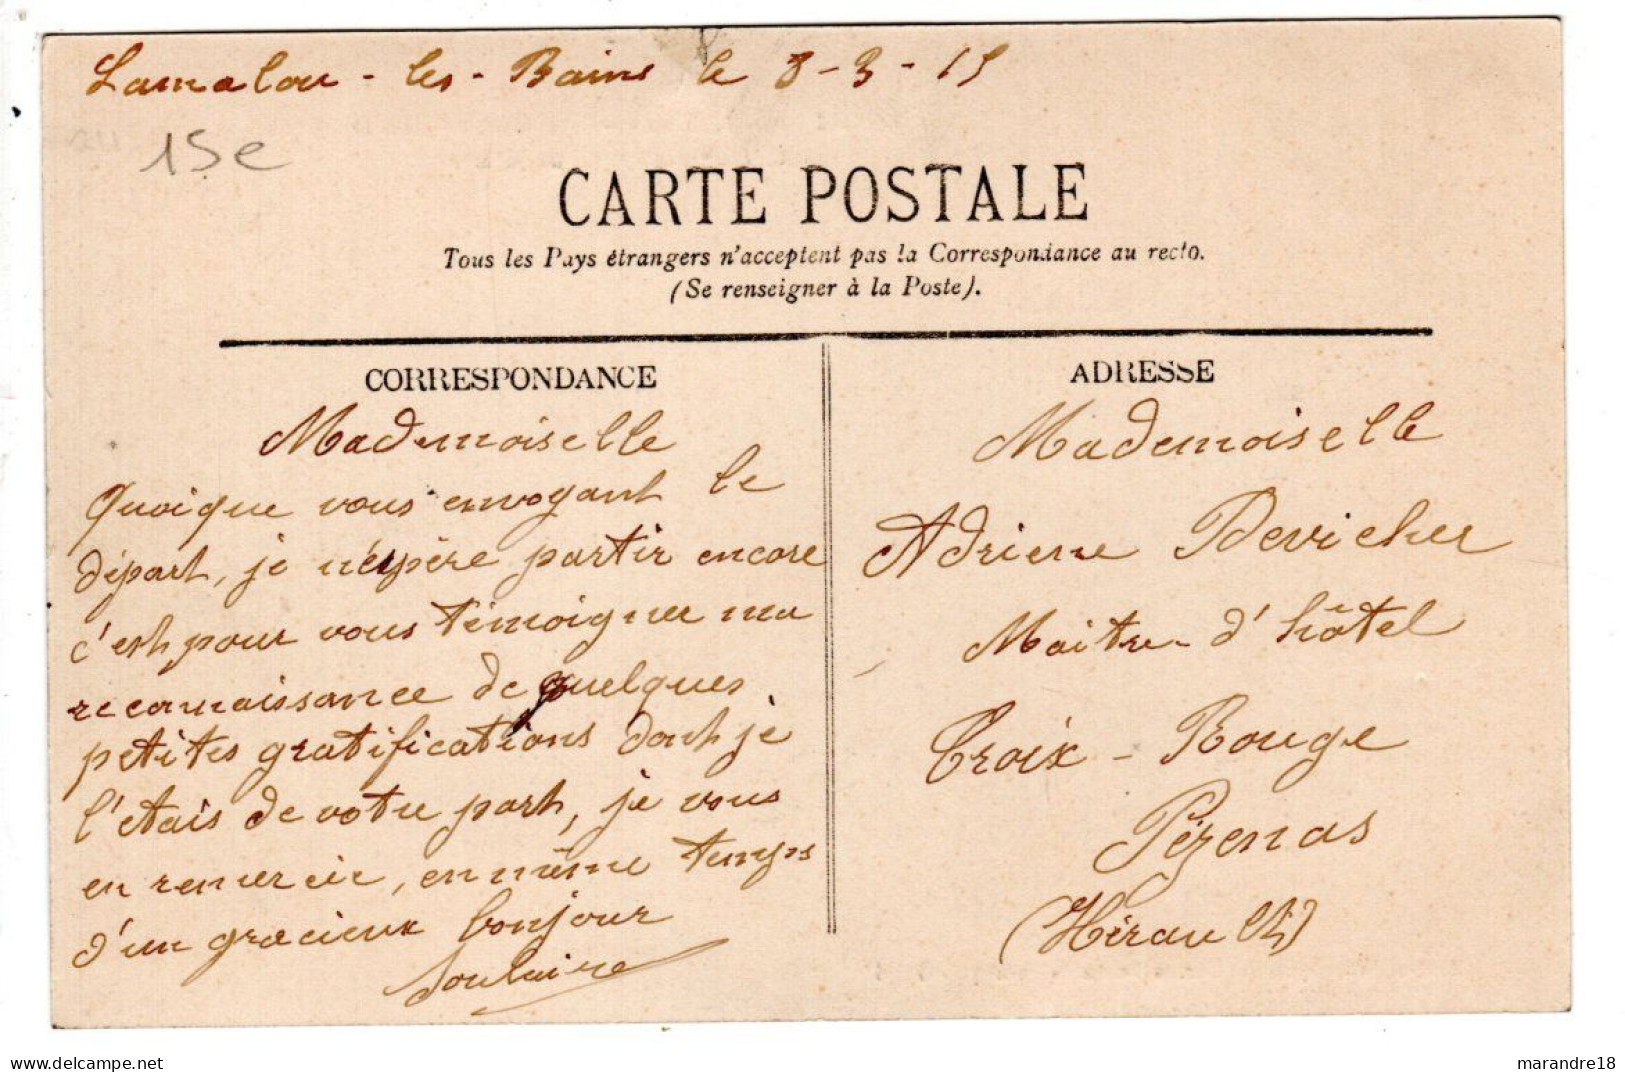 Lamalou-les-Bains le 8-3-15
15e
CARTE POSTALE
Tous les Pays étrangers n'acceptent pas la Correspondance au recto.
(Se renseigner à la Poste).
CORRESPONDANCE
Mademoiselle
Quoique vous envoyant le
départ, je n'éspère partir encore
c'est pour vous témoigner ma
reconnaissance de quelques
petites gratifications dont je
l'étais de votre part, je vous
en remercie, en même temps
d'un gracieux bonjour
Soulaire
ADRESSE
Mademoiselle
Adriene Devicher
Maitre d'hôtel
Croix-Rouge
Pézenas
(Hérault)
delcampe.net
marandre18